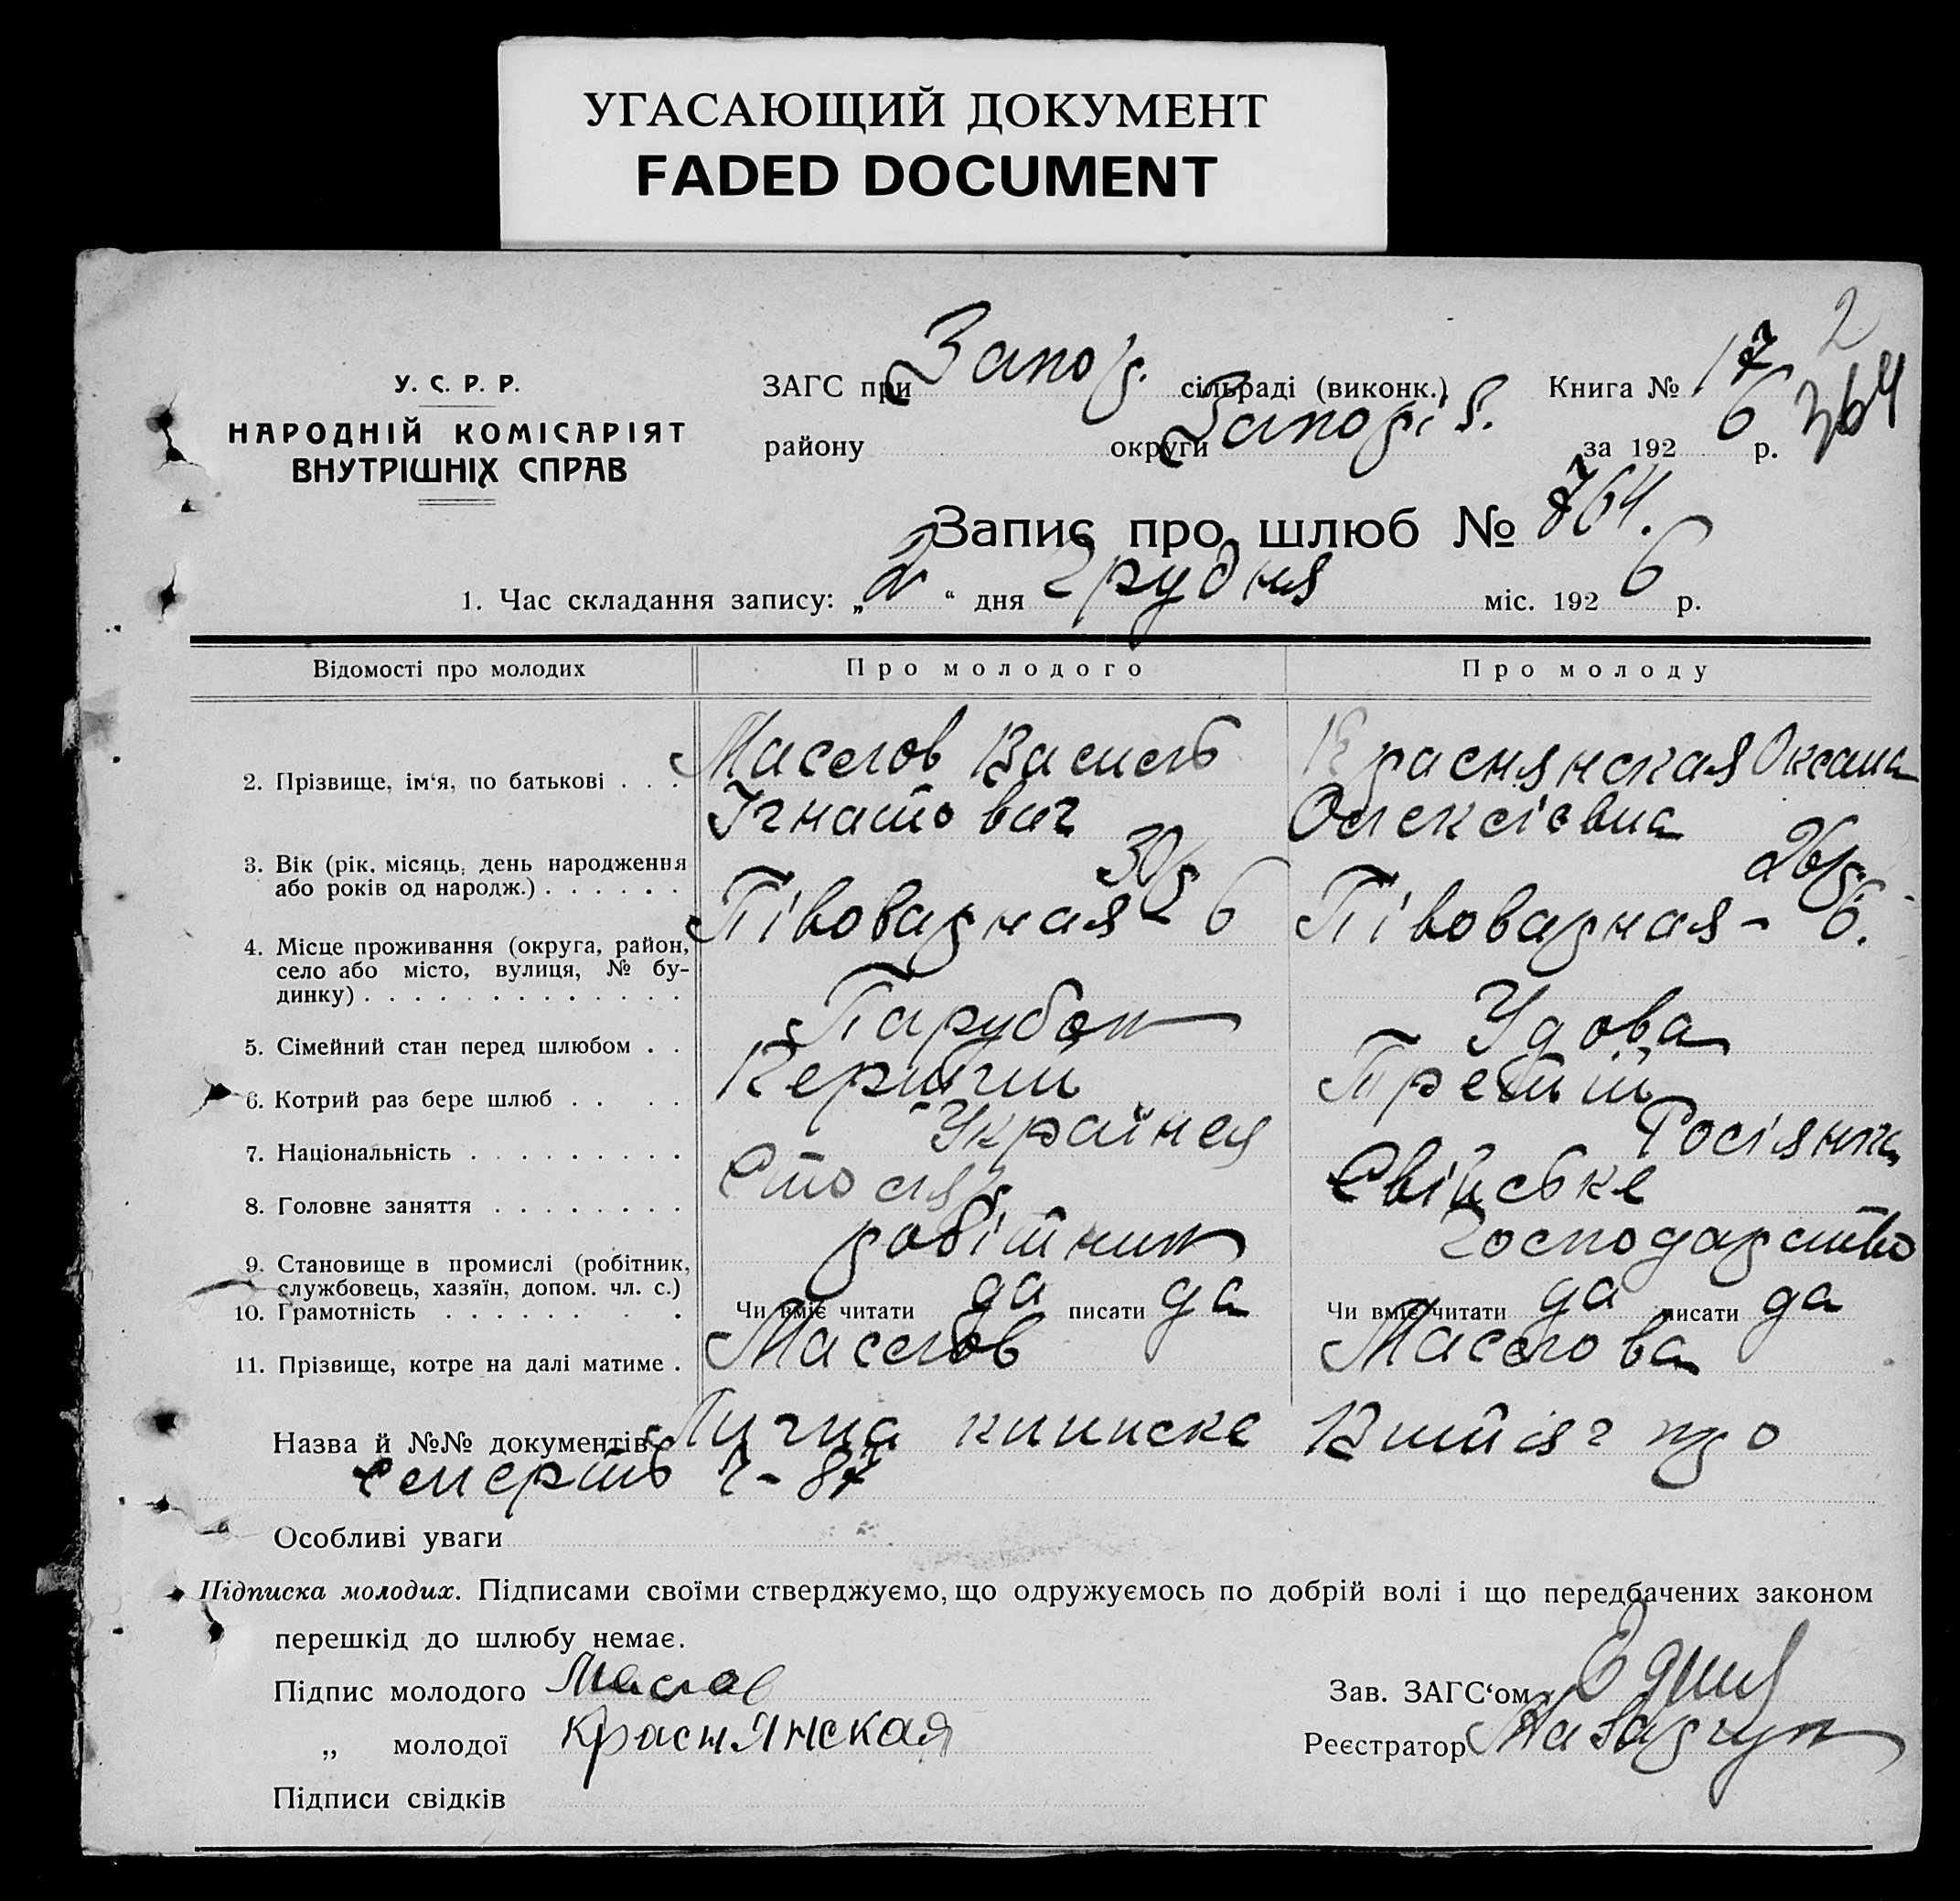 УГАСАЮЩИЙ ДОКУМЕНТ
FADED DOCUMENT
2
У. С. Р. Р.
НАРОДНІЙ КОМІСАРІЯТ
ВНУТРІШНІХ СПРАВ
ЗАГС при Запор. сільраді (виконк.) Книга № 17 364
району округи Запоріз. за 1926 р.
Запис про шлюб № 764.
1. Час складання запису: „2" дня Грудня міс. 1926 р.
Відомості про молодих Про молодого Про молоду
2. Прізвище, ім'я, по батькові . . . Маслов Василь Краснянская Оксана
Ігнатович Олексієвна
3. Вік (рік, місяць, день народження
або років од народж.) . . . . . . 30 р. 26 р.
4. Місце проживання (округа, район, Півоварная - 6 Півоварная - 6.
село або місто, вулиця, № бу-
динку) . . . . . . . . . . . . .
5. Сімейний стан перед шлюбом . . Парубок Удова
6. Котрий раз бере шлюб . . . . Перший Третій
7. Національність . . . . . . . . . Україн Росіянка
8. Головне заняття . . . . . . . . Столяр Свійське
господарство
9. Становище в промислі (робітник, робітник
службовець, хазяїн, допом. чл. с.)
10. Грамотність . . . . . . . . Чи вміє читати да писати да Чи вміє читати да писати да
11. Прізвище, котре на далі матиме . Маслов Маслова
Назва й №№ документів Лична книжка Витяг про
смерть ч - 87
Особливі уваги
Підписка молодих. Підписами своїми стверджуємо, що одружуємось по добрій волі і що передбачених законом
перешкід до шлюбу немає.
Підпис молодого Маслов Зав. ЗАГС'ом
„ молодої Краснянская Реєстратор
Підписи свідків